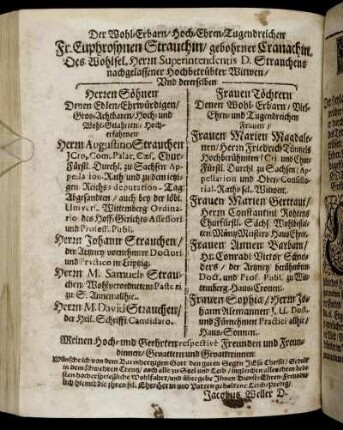 Der Wohl-Erbarn/Hoch-Ehren/Tugendreichen
Fr. Euphrosynen Strauchin/gebohrner Cranachin,
Des Wohlsel. Herrn Superintendentis D. Strauchens
nachgelassener Hochbetrübter Witwen/
Und derenselben
Herren Söhnen
Denen Edlen/Ehrwürdigen/
Gros-Achtbaren/Hoch- und
Wohl-Gelahrten/Hoch-
erfahrnen
Herrn Augustino Strauchen
JCto, Com. Palat. Cæs. Chur-
Fürstl. Durchl. zu Sachsen Ap-
pellation-Rath und zu dem itzi-
gen Reichs-deputation-Tag
Abgesandten/auch bey der löbl.
Univers. Wittemberg Ordina-
rio des Hoff-Gerichts Assessori
und Profess. Publ.
Herrn Johann Strauchen/
der Artzney vornehmen Doctori
und Practico in Leipzig.
Herrn M. Samuel Strau-
chen/Wohlverordnetem Pastori
zu S. Annen allhie.
Herrn M. David Strauchen/
der Heil. Schrifft Candidato.
Frauen Töchtern
Denen Wohl-Erbarn/Viel-
Ehr- und Tugendreichen
Frauen/
Frauen Marien Magdale-
nen/Herrn Friedrich Türnels
Hochberühmten/JCti und Chur
Fürstl. Durchl. zu Sachsen/Ap-
pellation und Ober-Consisto-
rial-Raths sel. Witwen.
Frauen Marien Gertraut/
Herrn Constantini Rothens
Churfürstl. Sächs. Wohlbestl-
ten Müntz-Meisters Haus Ehre.
Frauen Annen Barbarn/
Hr. Conradi Victor Schnei-
ders/der Artzney berühmten
Doct. und Prof. Publ. zu Wit-
tenberg, Haus-Cronen.
Frauen Sophia/Herrn Jo-
hann Alemannen J. U. Doct.
und Fürnehmen Practici allhie/
Haus-Sonnen.
Meinen Hoch- und Geehrten respectivè Freunden und Freun-
dinnen/Gevattern und Gevatterinnen
Wünsche ich von dem Barmhertzigen Gott den
Jacobus Weller D.